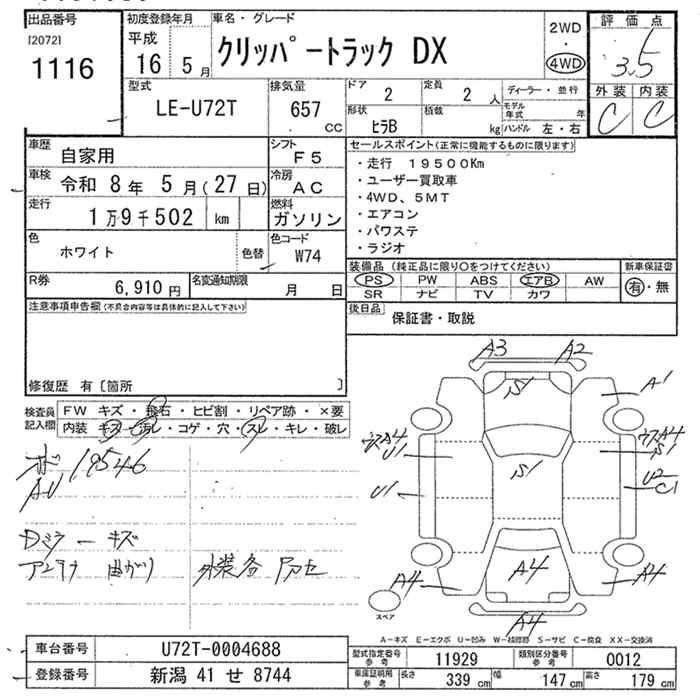 出品番号
[2072]
1116
初度登録年月
平成
16 5月
車名・グレード
クリッパートラック DX
2WD
・
4WD
評価点
3.5
外装 内装
C C
型式
LE-U72T
排気量
657
CC
ドア
2
定員
2 人
ディーラー・並行
モデル年式 年
形状
ヒラB
積載
kg
ハンドル 左・右
車歴
自家用
シフト
F5
車検
令和 8年 5月(27日)
冷房
AC
走行
1万9千502 km
燃料
ガソリン
色
ホワイト
色替
色コード
W74
R券
6,910円
名変通知期限
月 日
セールスポイント(正常に機能するものに限ります)
・走行 19500Km
・ユーザー買取車
・4WD、5MT
・エアコン
・パワステ
・ラジオ
装備品 (純正品に限り○をつけてください)
PS PW ABS エアB AW
SR ナビ TV カワ
新車保証書
有・無
後日品
保証書・取説
注意事項申告欄(不具合内容等は具体的に記入して下さい)
修復歴 有〔箇所 〕
検査員記入欄
FW キズ・飛石・ヒビ割・リペア跡・×要
内装 キズ・汚レ・コゲ・穴・スレ・キレ・破レ
19546
Dミラーキズ
アンテナ 曲がり 外装各
A3 A2
S1
A1
ウスA4
U1
ウスA4
S1
S1
U1
U2
C1
A4
A4
A4
A4
スペア
A-キズ E-エクボ U-凹み W-補修跡 S-サビ C-腐食 XX-交換済
車台番号
U72T-0004688
登録番号
新潟 41 せ 8744
型式指定番号
参考
11929
類別区分番号
参考
0012
車庫証明用
参考
長さ 339 cm 幅 147 cm 高さ 179 cm